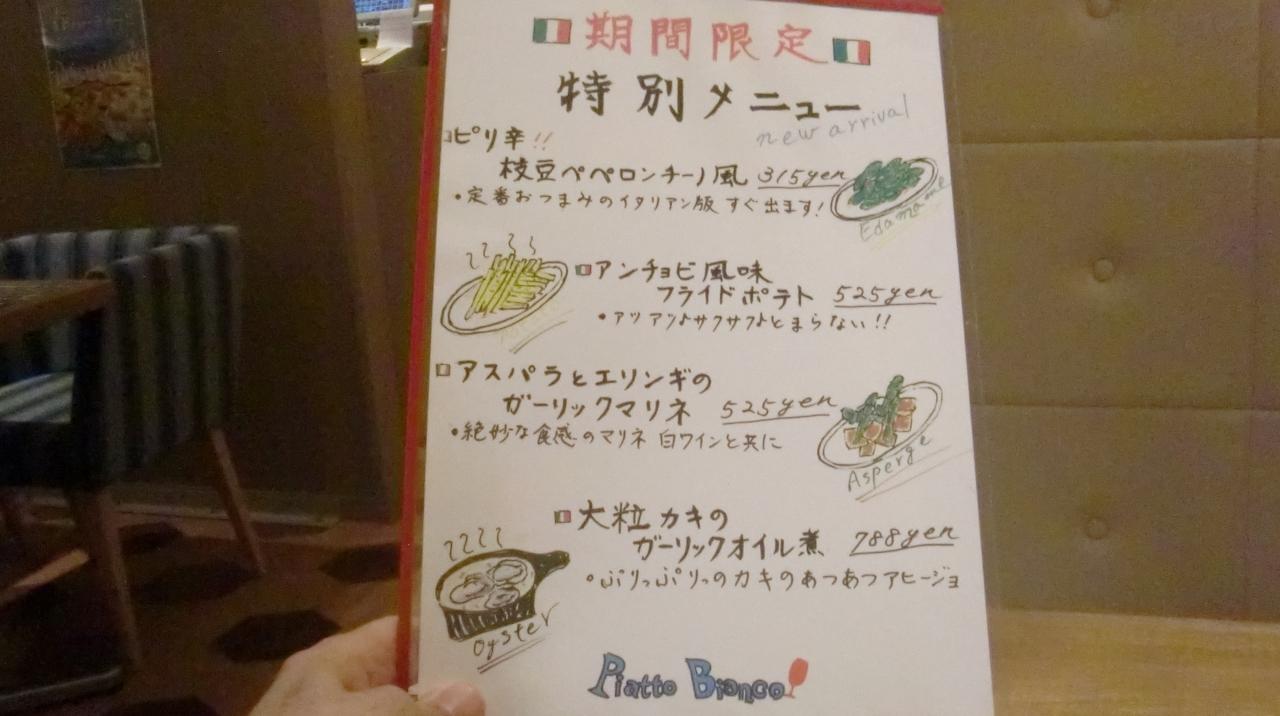 期間限定
特別メニュー
new arrival
ピリ辛!!
枝豆ペペロンチーノ風 315yen
・定番おつまみのイタリアン版 すぐ出ます!
Edamame
アンチョビ風味
フライドポテト 525yen
・アツアツ♪サクサク♪とまらない!!
アスパラとエリンギの
ガーリックマリネ 525yen
・絶妙な食感のマリネ 白ワインと共に
Asperge
大粒カキの
ガーリックオイル煮 788yen
・ぷりっぷりっのカキのあつあつアヒージョ
Oyster
Piatto Bianco